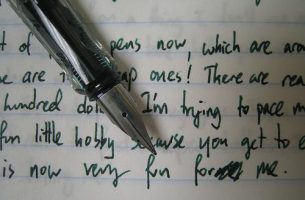 t of pens now, which are aro
se are cheap ones! There are rea
hundred dol I'm trying to pace m
fun little hobby because you get to e
is now very fun for me.